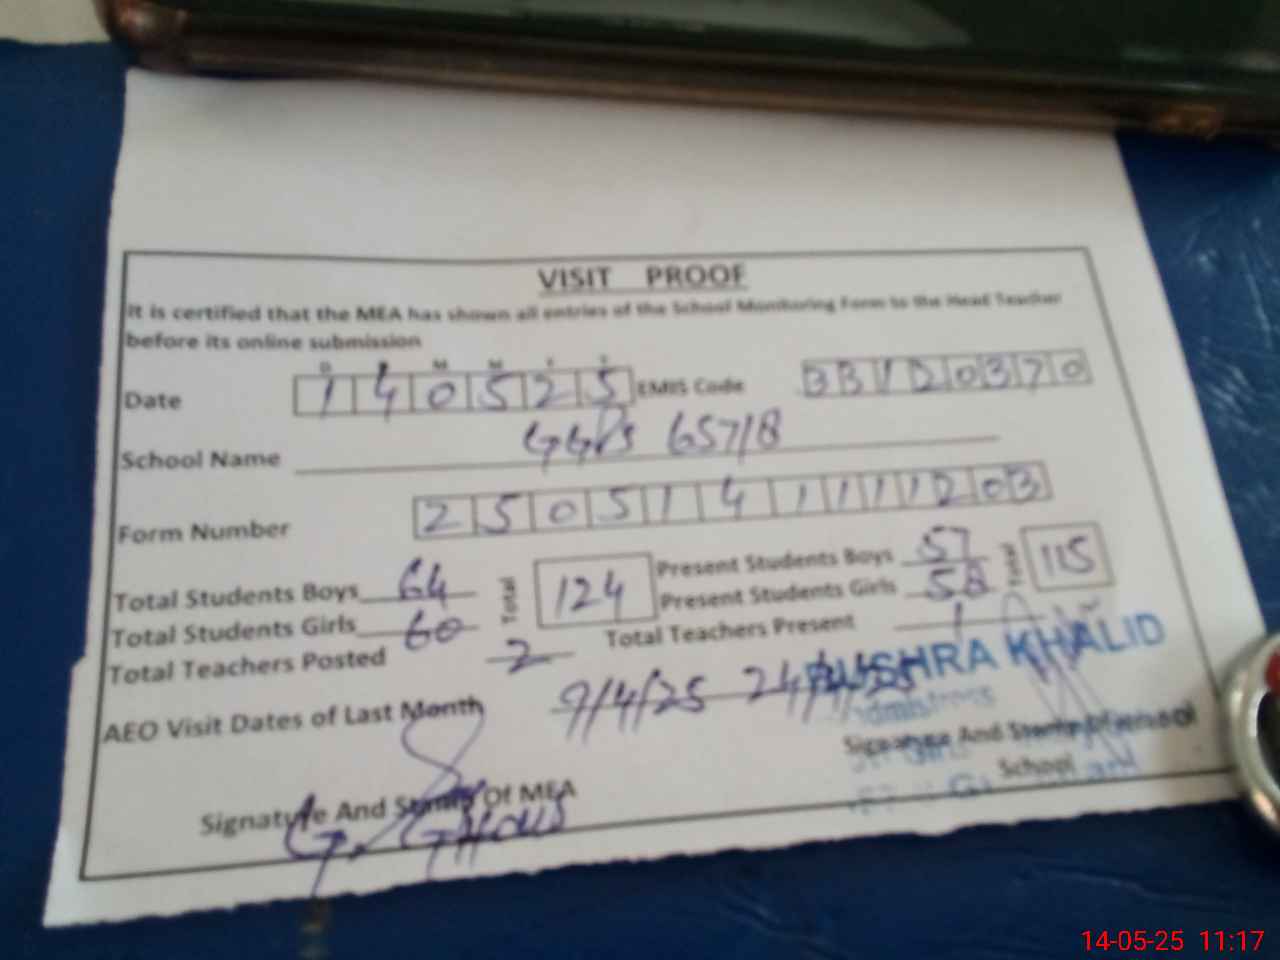 VISIT PROOF
It is certified that the MEA has shown all entries of the School Monitoring Form to the Head Teacher
before its online submission
D M M Y Y
Date 140525 EMIS Code 33120370
School Name GGPS 657/8
Form Number 2505141111203
Total Students Boys 64 Total 124 Present Students Boys 57 Total 115
Total Students Girls 60 Present Students Girls 58
Total Teachers Posted 2 Total Teachers Present 1
BUSHRA KHALID
AEO Visit Dates of Last Month 9/4/25 24/4/25
Signature And Stamp Of
School
Signature And Stamp Of MEA
G. Ghous
14-05-25 11:17